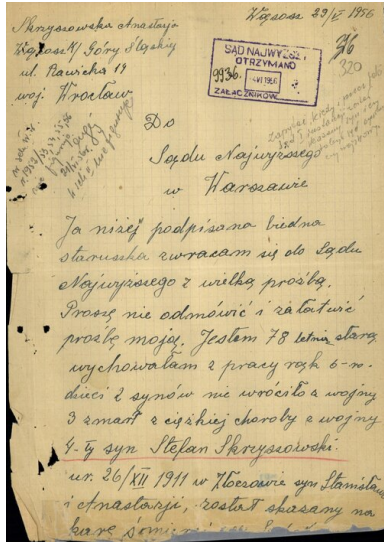 Skrzyszowska Anastazja
Wąsosz k/ Góry Śląskiej
ul. Rawicka 19
woj. Wrocław
Wąsosz 29/V 1956
320
SĄD NAJWYŻSZY
OTRZYMANO
9936. VI 1956
ZAŁĄCZNIKÓW
Do
Sądu Najwyższego
w Warszawie
Ja niżej podpisana biedna
staruszka zwracam się do Sądu
Najwyższego z wielką prośbą.
Proszę nie odmówić i załatwić
prośbę moją. Jestem 78 letnia starą
wychowałam z pracy rąk 6-ro
dzieci 2 synów nie wróciło z wojny
3 zmarł z ciężkiej choroby z wojny
4-ty syn Stefan Skrzyszowski.
ur. 26/XII 1911 w Złoczowie syn Stanisława
i Anastazji, został skazany na
karę śmierci